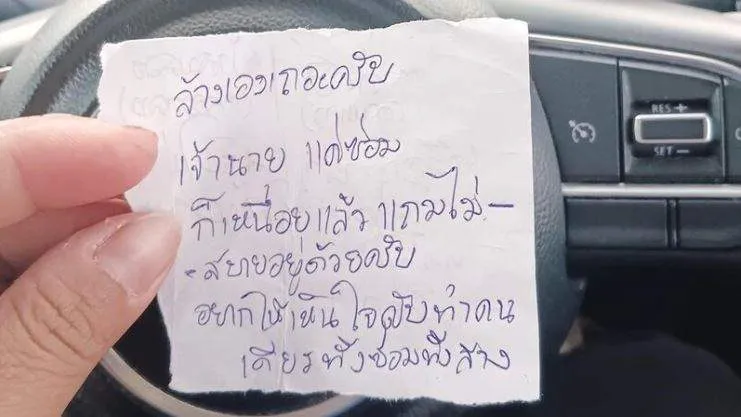 ล้างเองเถอะครับ
เจ้านาย แค่ซ่อม
ก็เหนื่อยแล้ว แถมไม่-
-สบายอยู่ด้วยครับ
อยากให้เห็นใจครับทำคน
เดียวทั้งซ่อมทั้งล้าง
RES +
SET -